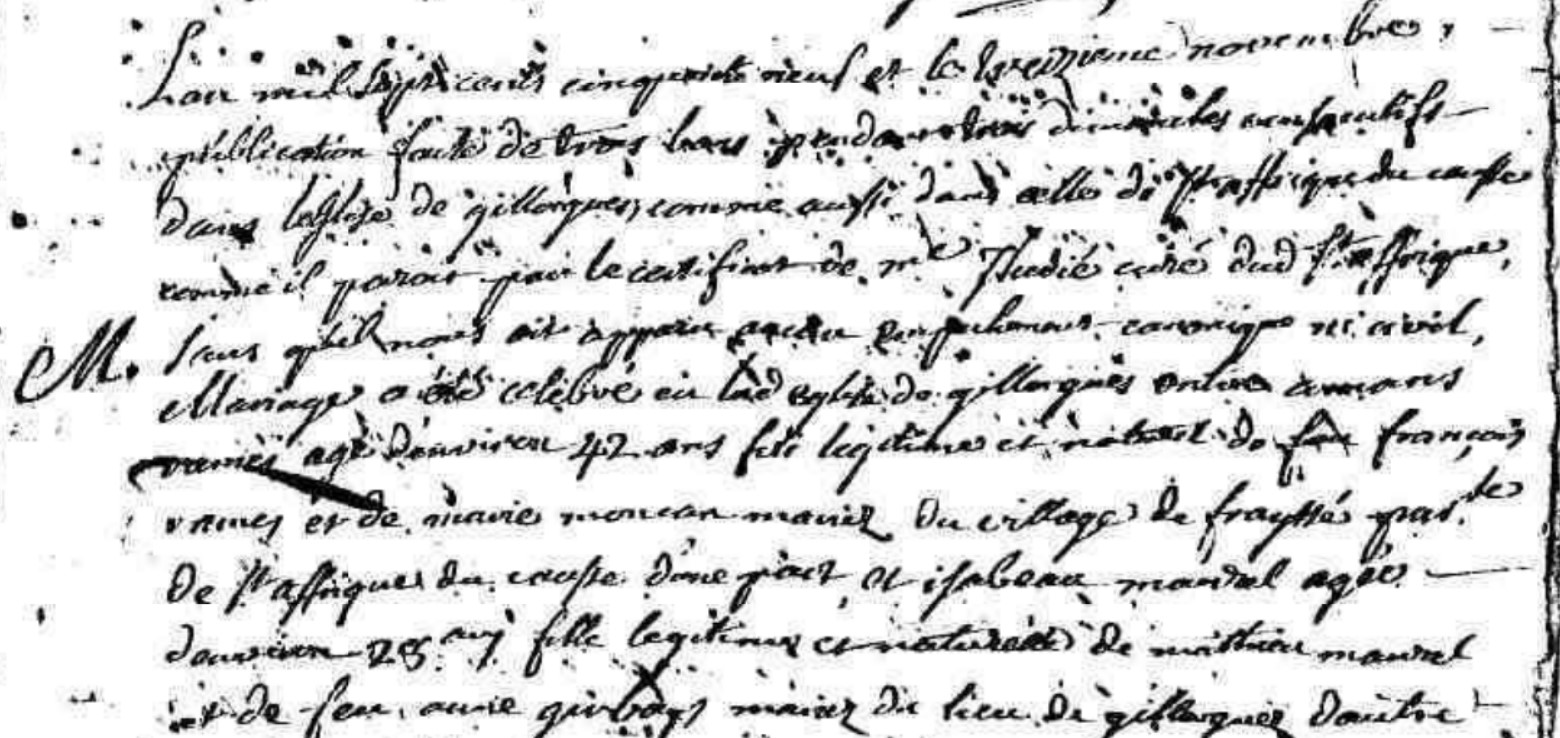 Lan mil sept cents cinquante neuf et le treizieme novembre,
publication faite de trois bans pendant trois dimanches consecutifs
dans leglise de gillorgues, comme aussi dans celle de St affrique du causse
comme il paroit par le certificat de mre curé dud St affrique,
sans quil nous ait apparu aucun empechement canonique ni civil,
M. Mariage a été celebré en lad eglise de gillorgues entre amans
vames agé denviron 42 ans fils legitime et naturel de feu françois
vames et de marie moncan mariez du village de fraysse par.sse de
de St affrique du causse dune part, et isabeau maurel agée
denviron 28 ans fille legitime et naturelle de mathieu maurel
et de feu anne mariez du lieu de gillorgues dautre